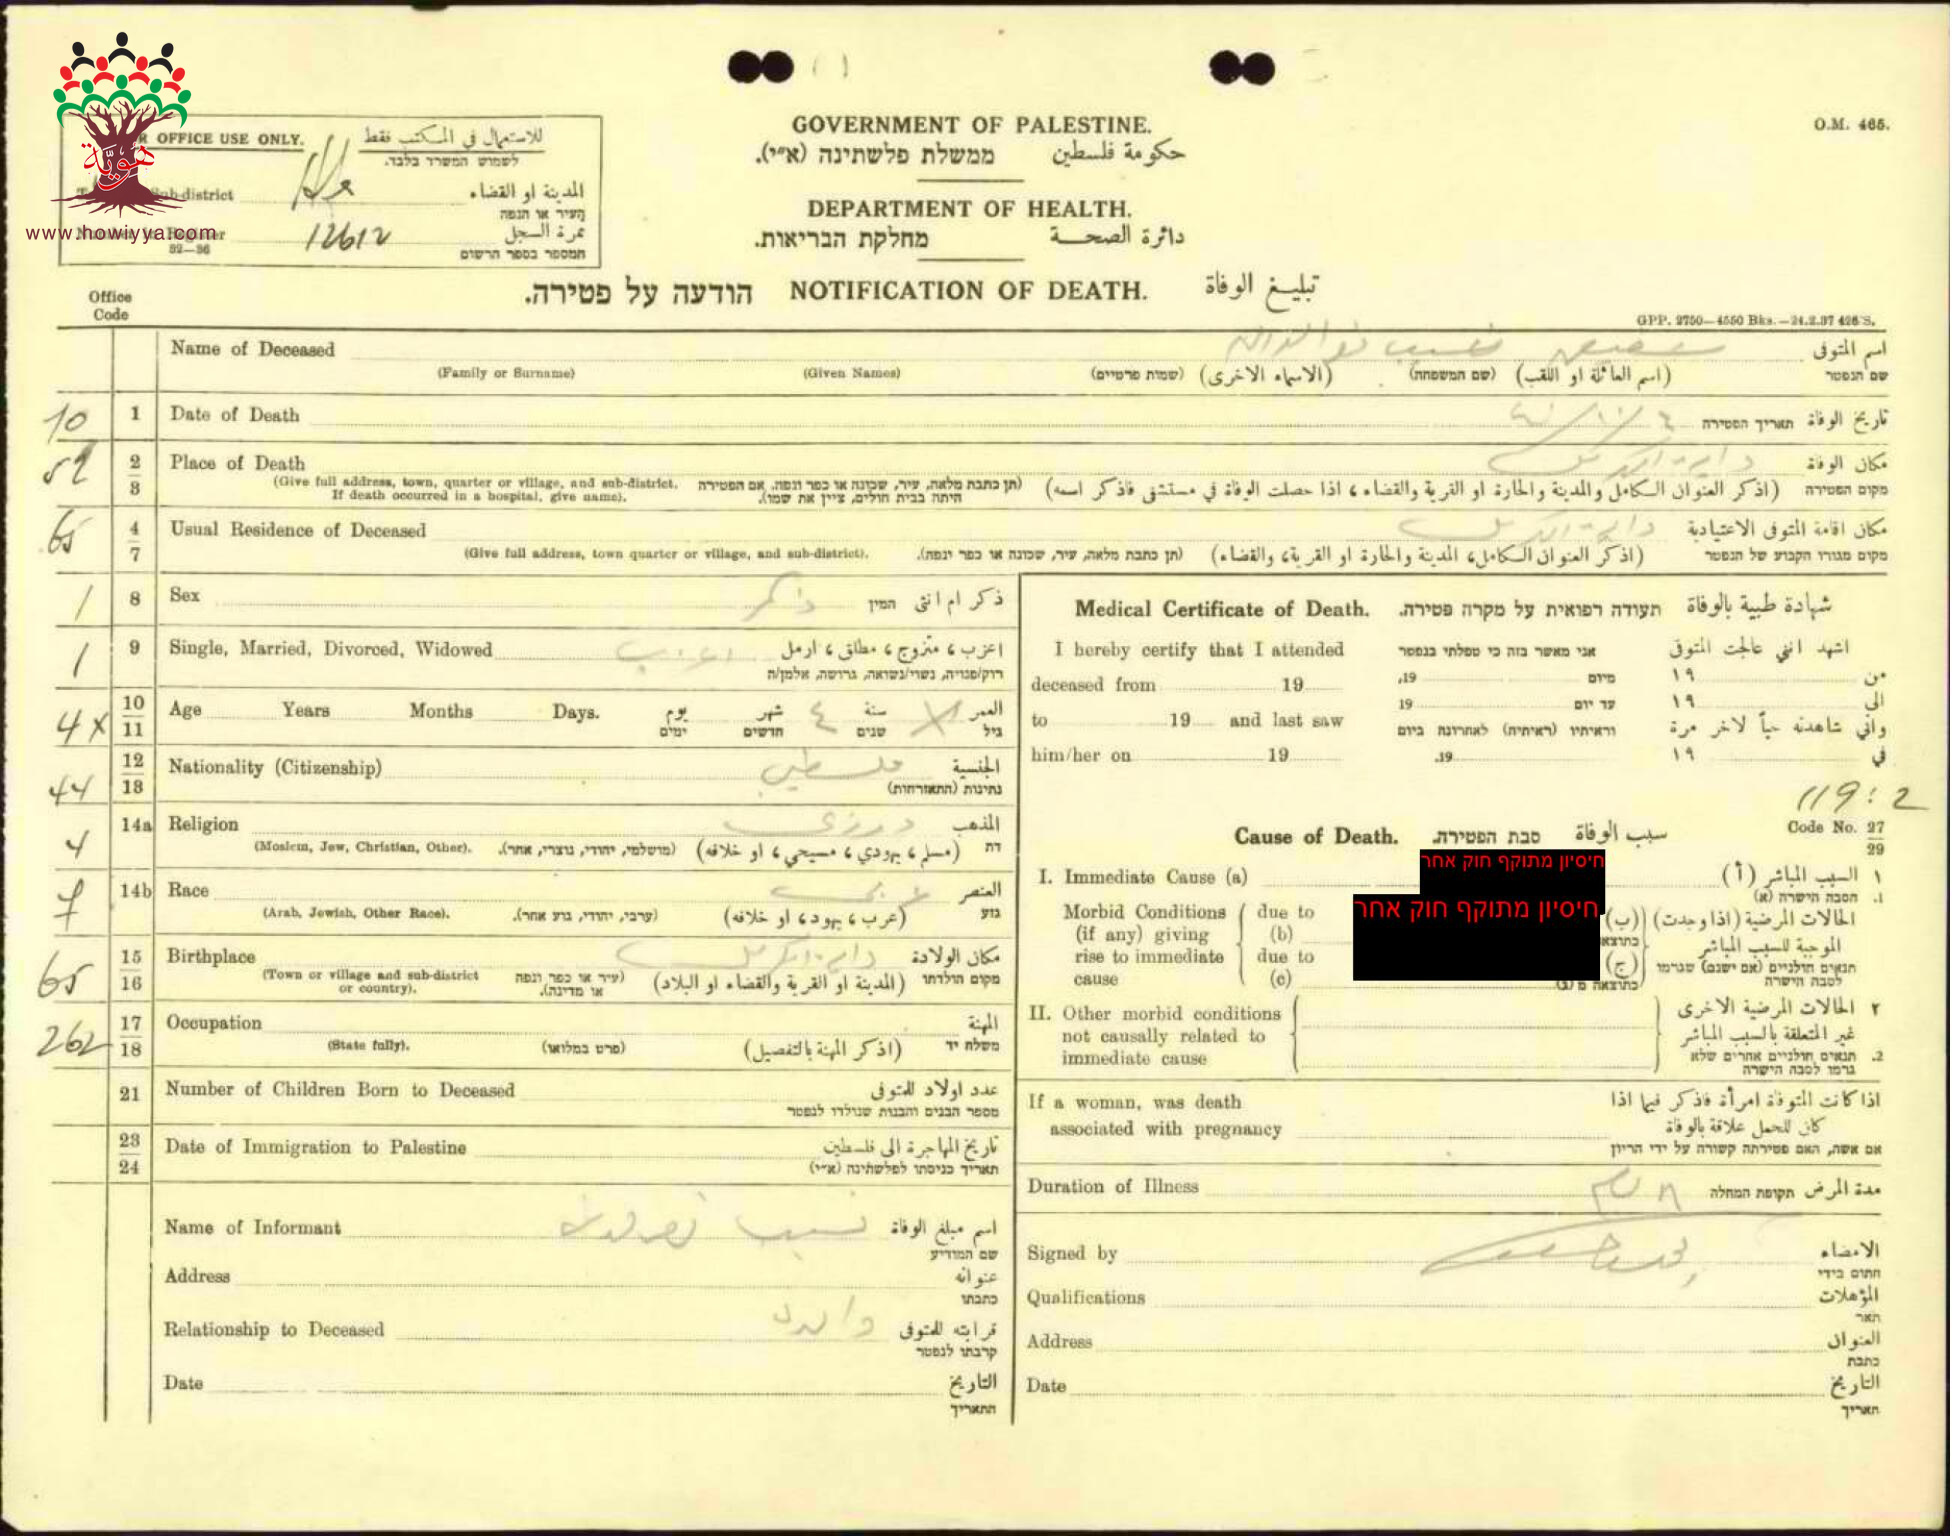 هويّة
www.howiyya.com
O.M. 465.
OFFICE USE ONLY. للاستعمال في المكتب فقط
לשמוש המשרד בלבד.
Sub-district المدينة او القضاء
העיר או הנפה
12612 نمرة السجل
82—86 המספר בספר הרשום
GOVERNMENT OF PALESTINE.
ממשלת פלשתינה (א״י). حكومة فلسطين
DEPARTMENT OF HEALTH.
מחלקת הבריאות. دائرة الصحة
הודעה על פטירה. NOTIFICATION OF DEATH. تبليغ الوفاة
Office
Code
GPP. 2750—4550 Bks.—24.2.37 426 S.
Name of Deceased اسم المتوفى
(Family or Surname) (Given Names) (שמות פרטיים) (الاسماء الاخرى) (שם המשפחה) (اسم العائلة او اللقب) שם הנפטר
10 1 Date of Death תאריך הפטירה تاريخ الوفاة
52 2 Place of Death دالية الكرمل مكان الوفاة
3 (Give full address, town, quarter or village, and sub-district. If death occurred in a hospital, give name).
(תן כתבת מלאה, עיר, שכונה או כפר ונפה. אם הפטירה היתה בבית חולים, ציין את שמו).
(اذكر العنوان الكامل والمدينة والحارة او القرية والقضاء، اذا حصلت الوفاة في مستشفى فاذكر اسمه) מקום הפטירה
65 4 Usual Residence of Deceased دالية الكرمل مكان اقامة المتوفى الاعتيادية
7 (Give full address, town quarter or village, and sub-district). (תן כתבת מלאה, עיר, שכונה או כפר ונפה). (اذكر العنوان الكامل، المدينة والحارة او القرية، والقضاء) מקום מגורו הקבוע של הנפטר
1 8 Sex ذكر המין ذكر ام انثى
1 9 Single, Married, Divorced, Widowed اعزب اعزب، متزوج، مطلق، ارمل
רוק/פנויה, נשוי/נשואה, גרושה, אלמן/ה
4 X 10 Age Years Months Days. يوم شهر ٤ سنة العمر
11 ימים חדשים שנים גיל
44 12 Nationality (Citizenship) فلسطيني الجنسية
13 נתינות (התאזרחות)
4 14a Religion درزي المذهب
(Moslem, Jew, Christian, Other). (מושלמי, יהודי, נוצרי, אחר). (مسلم، يهودي، مسيحي، او خلافه) דת
7 14b Race عربي العنصر
(Arab, Jewish, Other Race). (ערבי, יהודי, גזע אחר). (عرب، يهود، او خلافه) גזע
65 15 Birthplace دالية الكرمل مكان الولادة
16 (Town or village and sub-district or country). (עיר או כפר ונפה או מדינה). (المدينة او القرية والقضاء او البلاد) מקום הולדתו
262 17 Occupation المهنة
18 (State fully). (פרט במלואו) (اذكر المهنة بالتفصيل) משלח יד
21 Number of Children Born to Deceased عدد اولاد للمتوفى
מספר הבנים והבנות שנולדו לנפטר
23 Date of Immigration to Palestine تاريخ المهاجرة الى فلسطين
24 תאריך כניסתו לפלשתינה (א״י)
Name of Informant نسيب اسم مبلغ الوفاة
שם המודיע
Address عنوانه
כתבתו
Relationship to Deceased والده قرابته للمتوفى
קרבתו לנפטר
Date التاريخ
התאריך
Medical Certificate of Death. תעודה רפואית על מקרה פטירה. شهادة طبية بالوفاة
I hereby certify that I attended אני מאשר בזה כי טפלתי בנפטר اشهد انني عالجت المتوفى
deceased from 19 19, מיום ١٩ من
to 19 and last saw 19 עד יום ١٩ الى
וראיתיו (ראיתיה) לאחרונה ביום واني شاهدته حياً لاخر مرة
him/her on 19 19. ١٩ في
119:2
Cause of Death. סבת הפטירה. سبب الوفاة Code No. 27
29
חיסיון מתוקף חוק אחר
I. Immediate Cause (a) السبب المباشر (أ) ١
הסבה הישרה (א) .1
חיסיון מתוקף חוק אחר
Morbid Conditions due to (ب) الحالات المرضية (اذا وجدت)
(if any) giving (b) الموجبة للسبب المباشر
rise to immediate due to (ج) תנאים חולניים (אם ישנם) שגרמו
cause (c) לסבה הישרה
II. Other morbid conditions الحالات المرضية الاخرى ٢
not causally related to غير المتعلقة بالسبب المباشر
immediate cause תנאים חולניים אחרים שלא .2
גרמו לסבה הישרה
If a woman, was death اذا كانت المتوفاة امرأة فاذكر فيما اذا
associated with pregnancy كان للحمل علاقة بالوفاة
אם אשה, האם פטירתה קשורה על ידי הריון
Duration of Illness תקופת המחלה مدة المرض
Signed by الامضاء
חתום בידי
Qualifications المؤهلات
תאר
Address العنوان
כתבת
Date التاريخ
תאריך